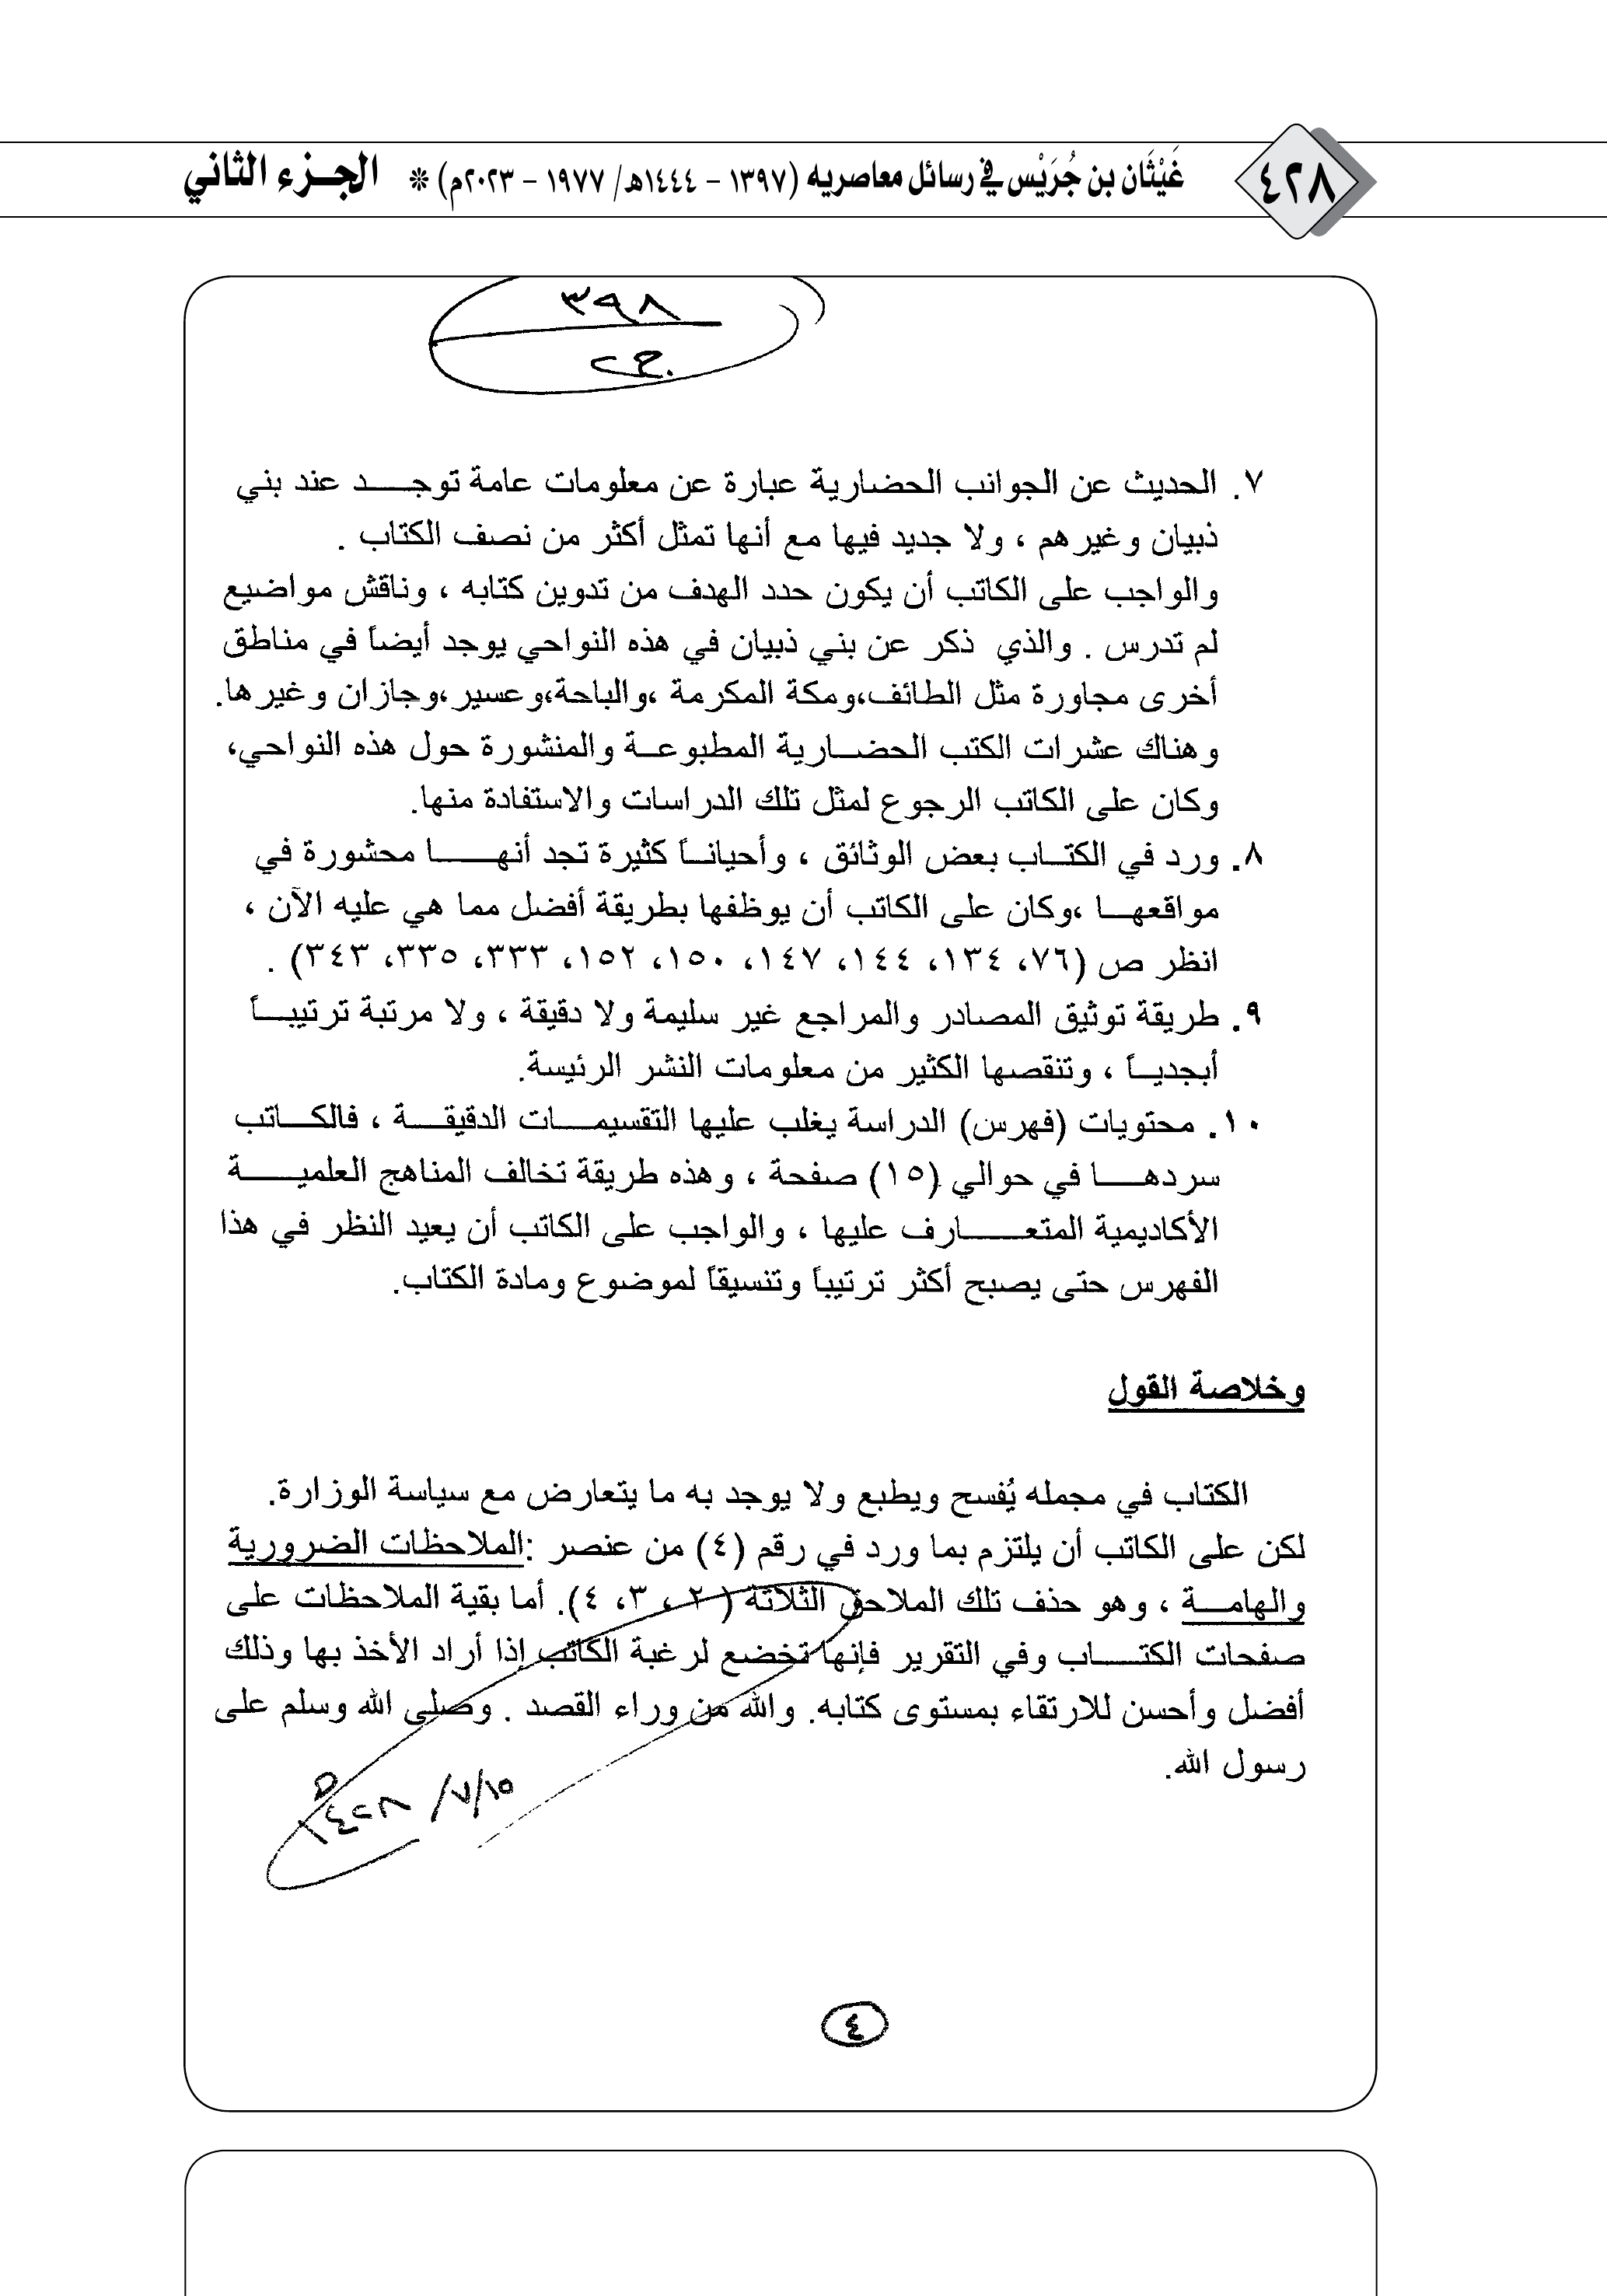 ٤٢٨
غَيْثَان بن جُرَيْس في رسائل معاصريه (١٣٩٧ - ١٤٤٤هـ/ ١٩٧٧ - ٢٠٢٣م) * الجزء الثاني
٣٩٨
٧. الحديث عن الجوانب الحضارية عبارة عن معلومات عامة توجد عند بني
ذبيان وغيرهم ، ولا جديد فيها مع أنها تمثل أكثر من نصف الكتاب .
والواجب على الكاتب أن يكون حدد الهدف من تدوين كتابه ، وناقش مواضيع
لم تدرس . والذي ذكر عن بني ذبيان في هذه النواحي يوجد أيضاً في مناطق
أخرى مجاورة مثل الطائف،ومكة المكرمة ،والباحة،وعسير،وجازان وغيرها.
وهناك عشرات الكتب الحضارية المطبوعة والمنشورة حول هذه النواحي،
وكان على الكاتب الرجوع لمثل تلك الدراسات والاستفادة منها.
٨. ورد في الكتاب بعض الوثائق ، وأحياناً كثيرة تجد أنها محشورة في
مواقعها ،وكان على الكاتب أن يوظفها بطريقة أفضل مما هي عليه الآن ،
انظر ص (٧٦، ١٣٤، ١٤٤، ١٤٧، ١٥٠، ١٥٢، ٣٣٣، ٣٣٥، ٣٤٣) .
٩. طريقة توثيق المصادر والمراجع غير سليمة ولا دقيقة ، ولا مرتبة ترتيباً
أبجدياً ، وتنقصها الكثير من معلومات النشر الرئيسة.
١٠. محتويات (فهرس) الدراسة يغلب عليها التقسيمات الدقيقة ، فالكاتب
سردها في حوالي (١٥) صفحة ، وهذه طريقة تخالف المناهج العلمية
الأكاديمية المتعارف عليها ، والواجب على الكاتب أن يعيد النظر في هذا
الفهرس حتى يصبح أكثر ترتيباً وتنسيقاً لموضوع ومادة الكتاب.
وخلاصة القول
الكتاب في مجمله يُفسح ويطبع ولا يوجد به ما يتعارض مع سياسة الوزارة.
لكن على الكاتب أن يلتزم بما ورد في رقم (٤) من عنصر :الملاحظات الضرورية
والهامة ، وهو حذف تلك الملاحق الثلاثة (٢ ، ٣، ٤). أما بقية الملاحظات على
صفحات الكتاب وفي التقرير فإنها تخضع لرغبة الكاتب إذا أراد الأخذ بها وذلك
أفضل وأحسن للارتقاء بمستوى كتابه. والله من وراء القصد . وصلى الله وسلم على
رسول الله.
١٥/٧/ ١٤٢٨هـ
٤